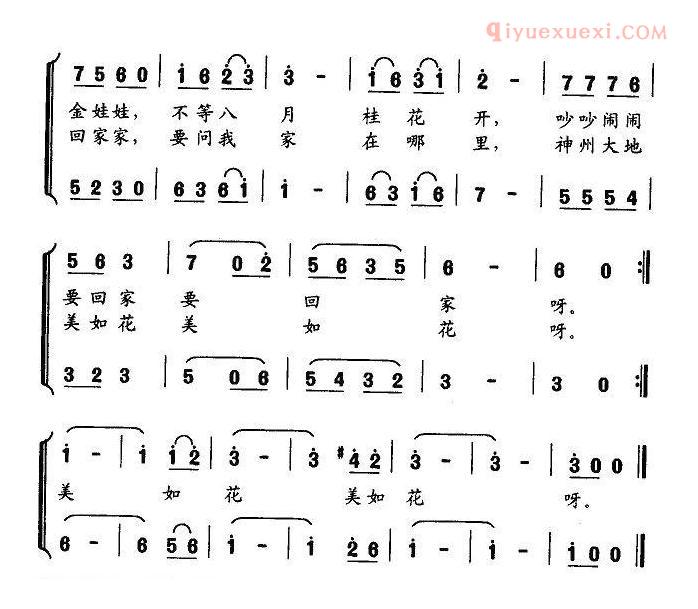 qiyuexuexi.com
7 5 6 0 | i 6 2 3 | 3 - | i 6 3 i | 2 - | 7 7 7 6 |
金娃娃, 不等八 月 桂 花 开, 吵吵闹闹
回家家, 要问我 家 在 哪 里, 神州大地
5 2 3 0 | 6 3 6 i | i - | 6 3 i 6 | 7 - | 5 5 5 4 |
5 6 3 | 7 0 2 | 5 6 3 5 | 6 - | 6 0 :||
要回家 要 回 家 呀。
美如花 美 如 花 呀。
3 2 3 | 5 0 6 | 5 4 3 2 | 3 - | 3 0 :||
i - | i i 2 | 3 - | 3 #4 2 | 3 - | 3 - | 3 0 0 ||
美 如 花 美如 花 呀。
6 - | 6 5 6 | i - | i 2 6 | i - | i - | i 0 0 ||